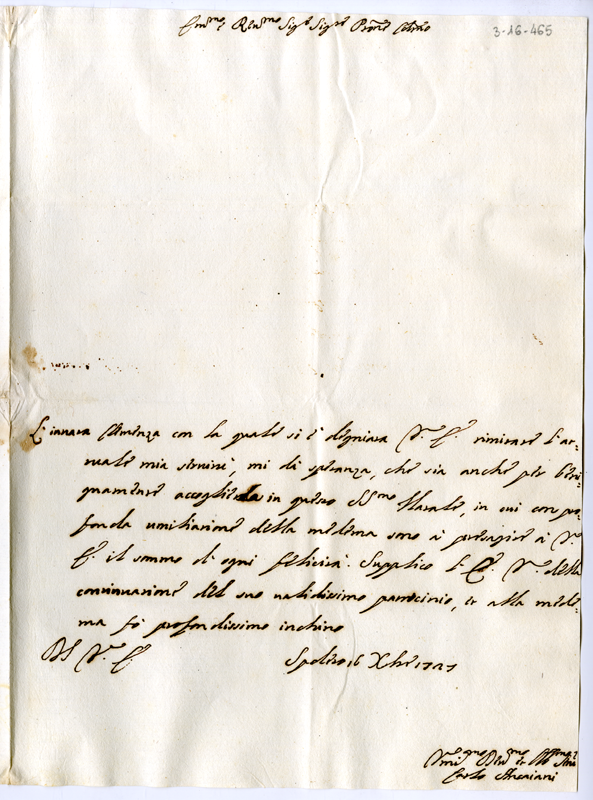 Em.mo e Rev.mo Sig.r Sig.r P̃rone Col.mo
3-16-465
L'innata clemenza con la quale si è degnata V.ra E. rimirare l'at-
tuale mia servitù, mi dà speranza, che sia anche per beni-
gnamente accoglierla in questo SS.mo Natale, in cui con pro-
fonda umiliazione della medema sono à presagire à V.ra
E. il sommo di ogni felicità. Supplico l'E. V.ra della
continuazione del suo validissimo patrocinio, et alla mede-
ma fò profondissimo inchino
Di V.ra E.
Spoleto 16 Xbre 1727
Um.mo Dev.mo et Obl.mo
Carlo